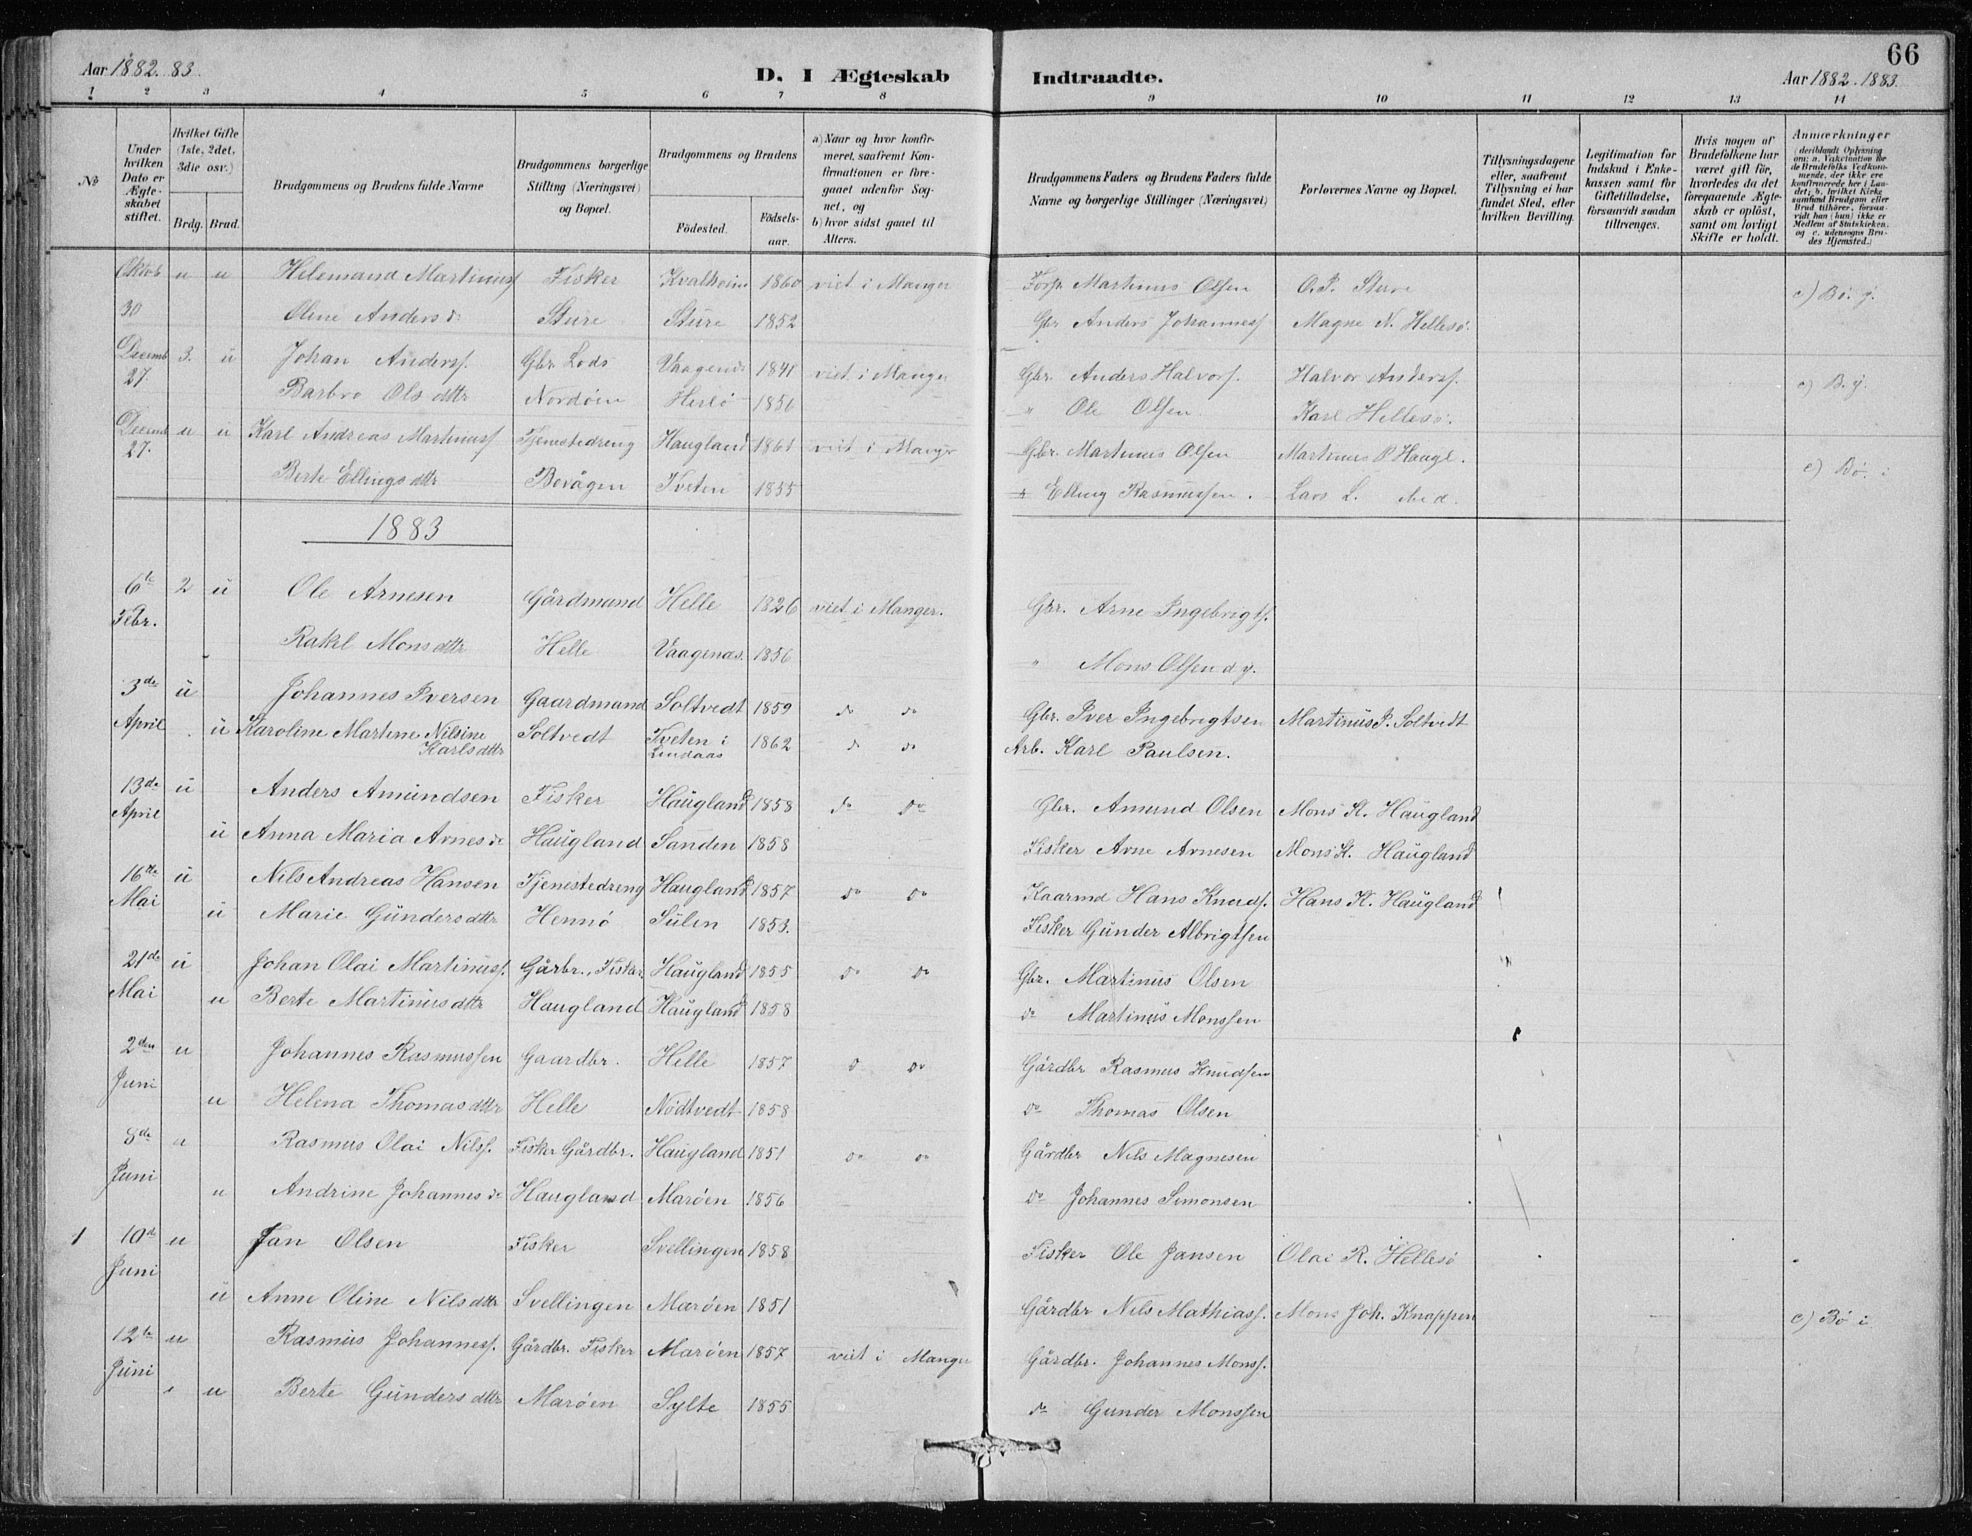 66
Aar 1882. 83.
D. I Ægteskab Indtraadte.
Aar 1882. 1883.
1 2 3 4 5 6 7 8 9 10 11 12 13 14
No
Under hvilken Dato er Ægteskabet stiftet.
Hvilket Gifte (1ste, 2det, 3die osv.)
Brdg. Brud.
Brudgommens og Brudens fulde Navne
Brudgommens borgerlige Stilling (Næringsvei) og Bopæl.
Brudgommens og Brudens
Fødested. Fødselsaar.
a) Naar og hvor konfirmeret, saafremt Konfirmationen er foregaaet udenfor Sognet, og
b) hvor sidst gaaet til Alters.
Brudgommens Faders og Brudens Faders fulde Navne og borgerlige Stillinger (Næringsvei)
Forlovernes Navne og Bopæl.
Tillysningsdagene eller, saafremt Tillysning ei har fundet Sted, efter hvilken Bevilling.
Legitimation for Indskud i Enkekassen samt for Giftetilladelse, forsaavidt saadan tiltrænges.
Hvis nogen af Brudefolkene har været gift før, hvorledes da det foregaaende Ægteskab er opløst, samt om lovligt Skifte er holdt.
Anmærkninger (deriblandt Oplysning om: a. Vakcination for de Brudefolks Vedkommende, der ikke ere konfirmerede her i Landet; b. hvilket Kirkesamfund Brudgom eller Brud tilhører, forsaavidt han (hun) ikke er Medlem af Statskirken, og c. udensogns Brudes Hjemsted.)
Oktob u u Helemand Martinuss Fisker Kvalheim 1860 viet i Manger Forp. Martinus Olsen O. P. Sture c) Bø. g.
30 Oline Anders d. Sture Sture 1852 Gbr Anders Johanness Magne N. Hellesø.
Decemb 3. u Johan Anderss. Gbr. Lods Vaagenes 1841 viet i Manger Gbr. Anders Halvors. Halvor Anderss. c) B. g.
27. Barbro Ols dttr Nordøen Herlø 1856 " Ole Olsen Karl Hellesø.
Decemb u u Karl Andreas Martinuss Tjenestedreng Haugland 1861 viet i Manger Gbr. Martinus Olsen Martinus P. Haugl. c) Bø. i
27. Berte Ellings dttr Bøvågen Tveten 1855 " Elling Rasmussen. Lars L. ibid.
1883
6te 2 u Ole Arnesen Gårdmand Helle 1826 viet i Manger. Gbr. Arne Ingebrigts.
Febr. Rakel Mons dttr Helle Vaagenæs. 1856 " Mons Olsen d. y.
3de u Johannes Iversen Gaardmand Soltvedt 1859 do do Gbr. Iver Ingebrigtsen Martinus P. Soltvedt
April u Karoline Martine Nilsine Karlsdttr Soltvedt Tveten i Lindaas 1862 do do Arb. Karl Paulsen.
13de u Anders Amundsen Fisker Haugland 1858 do do Gbr. Amund Olsen Mons K. Haugland
April u Anna Maria Arnes d. Haugland Sanden 1858 Fisker Arne Arnesen Mons K. Haugland
16de u Nils Andreas Hansen Tjenestedreng Haugland 1857 do do Kaarmd Hans Knuds. Hans K. Haugland
Mai u Marie Gunders dttr Hennø Sulen 1853. Fisker Gunder Albrigtsen
21de u Johan Olai Martinuss. Gårbr., Fisker Haugland 1855 do do Gbr. Martinus Olsen
Mai u Berte Martinus dttr Haugland Haugland 1858 do Martinus Monssen
2den u Johannes Rasmussen Gaardbr. Helle 1857 do do Gårdbr Rasmus Knudsen
Juni u Helena Thomas dttr Helle Nødtvedt 1858 do Thomas Olsen
8de u Rasmus Olai Nilss. Fisker Gårdbr. Haugland 1851 do do Gårdbr Nils Magnesen
Juni u Andrine Johannes d. Haugland Marøen 1856 do Johannes Simonsen
1 10d u Jan Olsen Fisker Svellingen 1858 Fisker Ole Jansen Olai R. Hellesø
Juni u Anne Oline Nils dttr Svellingen Marøen 1851 Gårdbr Nils Mathiass. Mons Joh. Knappen c) Bø i
12te u Rasmus Johanness. Gårdbr. Fisker Marøen 1857 viet i Manger Gårdbr. Johannes Monss.
Juni u Berte Gunders dttr Marøen Sylte 1855 do Gunder Monssen